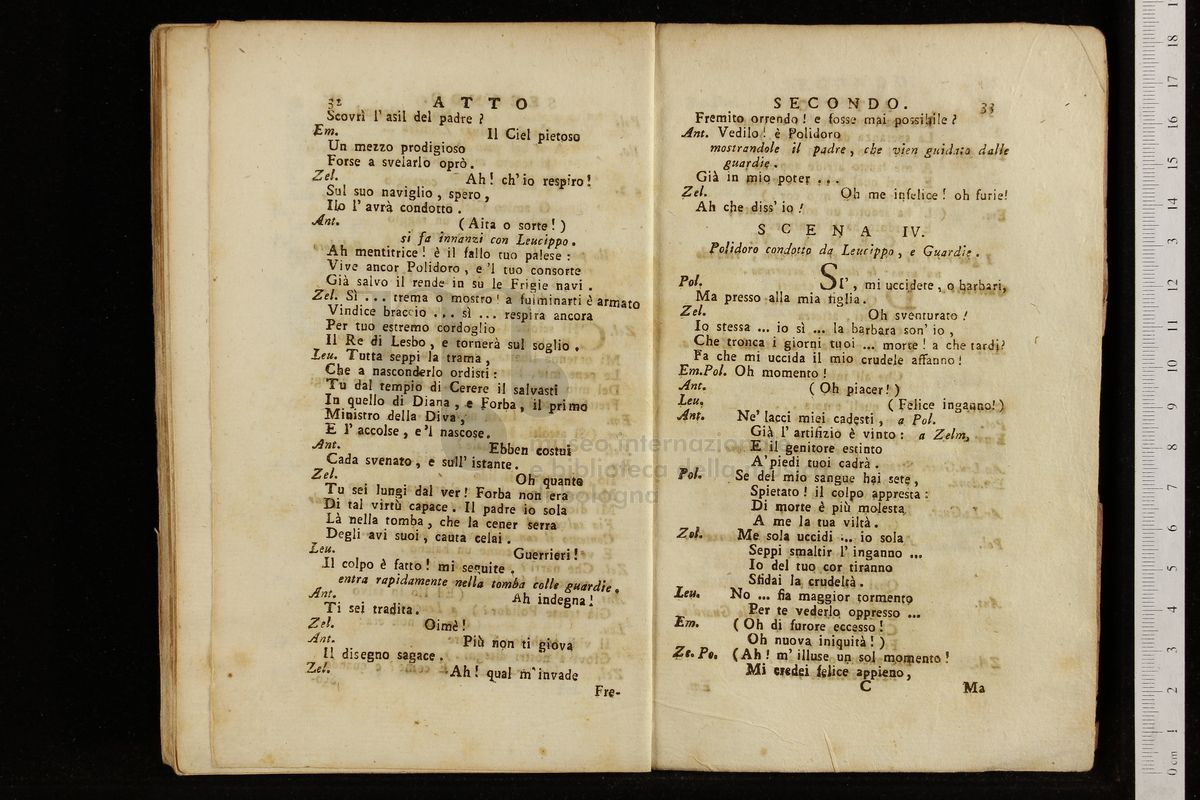 32 ATTO
Scovrì l' asil del padre ?
Em. Il Ciel pietoso
Un mezzo prodigioso
Forse a svelarlo oprò.
Zel. Ah! ch'io respiro!
Sul suo naviglio , spero,
Ilo l' avrà condotto .
Ant. (Aita o sorte!)
si fa innanzi con Leucippo.
Ah mentitrice! è il fallo tuo palese :
Vive ancor Polidoro , e 'l tuo consorte
Già salvo il rende in su le Frigie navi .
Zel. Sì ... trema o mostro! a fulminarti è armato
Vindice braccio ... sì ... respira ancora
Per tuo estremo cordoglio
Il Re di Lesbo, e tornerà sul soglio .
Leu. Tutta seppi la trama ,
Che a nasconderlo ordisti :
Tu dal tempio di Cerere il salvasti
In quello di Diana , e Forba, il primo
Ministro della Diva,
E l' accolse , e 'l nascose.
Ant. Ebben costui
Cada svenato , e sull' istante.
Zel. Oh quanto
Tu sei lungi dal ver! Forba non era
Di tal virtù capace. Il padre io sola
Là nella tomba , che la cener serra
Degli avi suoi , cauta celai .
Leu. Guerrieri!
Il colpo è fatto! mi seguite .
entra rapidamente nella tomba colle guardie.
Ant. Ah indegna!
Ti sei tradita.
Zel. Oimè!
Ant. Più non ti giova
Il disegno sagace.
Zel. Ah! qual m'invade
Fre-
SECONDO. 33
Fremito orrendo! e fosse mai possibile?
Ant. Vedilo! è Polidoro
mostrandole il padre, che vien guidato dalle
guardie.
Già in mio poter ...
Zel. Oh me infelice! oh furie!
Ah che diss' io!
SCENA IV.
Polidoro condotto da Leucippo, e Guardie.
Pol. Sì', mi uccidete, o barbari,
Ma presso alla mia figlia.
Zel. Oh sventurato!
Io stessa ... io sì ... la barbara son' io ,
Che tronca i giorni tuoi ... morte! a che tardi?
Fa che mi uccida il mio crudele affanno!
Em.Pol. Oh momento!
Ant. (Oh piacer!)
Leu. (Felice inganno!)
Ant. Ne' lacci miei cadesti, a Pol.
Già l' artifizio è vinto : a Zelm,
E il genitore estinto
A' piedi tuoi cadrà .
Pol. Se del mio sangue hai sete,
Spietato! il colpo appresta :
Di morte è più molesta
A me la tua viltà .
Zel. Me sola uccidi ... io sola
Seppi smaltir l' inganno ...
Io del tuo cor tiranno
Sfidai la crudeltà .
Leu. No ... fia maggior tormento
Per te vederlo oppresso ...
Em. (Oh di furore eccesso!
Oh nuova iniquità!)
Ze. Po. (Ah! m' illuse un sol momento!
Mi credei felice appieno,
C Ma
museo internazionale
e biblioteca della musica
bologna
0 cm 1 2 3 4 5 6 7 8 9 10 11 12 13 14 15 16 17 18